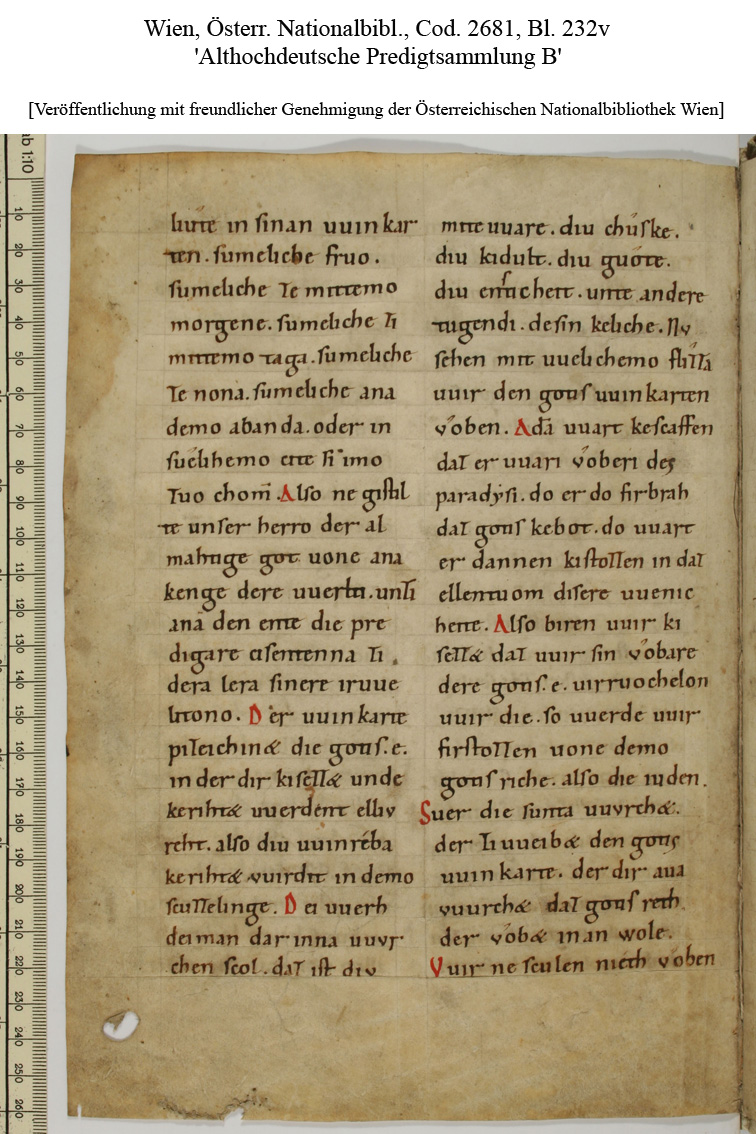 Wien, Österr. Nationalbibl., Cod. 2681, Bl. 232v
'Althochdeutsche Predigtsammlung B'
[Veröffentlichung mit freundlicher Genehmigung der Österreichischen Nationalbibliothek Wien]
ab 1:10
10
20
30
40
50
60
70
80
90
100
110
120
130
140
150
160
170
180
190
200
210
220
230
240
250
260
liute in sinan uuinkar
ten. sumeliche fruo.
sumeliche ze mittemo
morgene. sumeliche zi
mittemo taga. sumeliche
ze nona. sumeliche ana
demo abanda. oder in
suelihemo cite zi imo
zuo chom̄. Also ne gistil
te unser herro der al
mahtige got uone ana
kenge dere uuerlti. unzi
ana den ente die pre
digare cisentenna zi
dera lera sinere iruue
litono. Der uuinkarte
pizeichinet die gotis. e.
in der dir kisezzet unde
kerihtet uuerdent elliv
reht. also diu uuinreba
kerihtet vuirdit in demo
scuzzelinge. Dei uuerh
dei man dar inna uuvr
chen scol. daz ist div
mitteuuare. diu chúske.
diu kidult. diu guote.
diu ensticheit. unte andere
tugendi. desin keliche. Nv
sehen mit uuelichemo flizzā
uuir den gotis uuinkarten
vóben. Adā uuart kescaffen
daz er uuari vóberi des
paradysi. do er do firbrah
daz gotis kebot. do uuart
er dannen kistozzen in daz
ellentuom disere uuenic
heite. Also biren uuir ki
sezzet daz uuir sin vobare
dere gotis. e. uirruochelon
uuir die. so uuerde uuir
firstozzen uone demo
gotis riche. also die iuden.
Suer die sunta uuvrchet.
der ziuueibet den gotis
uuinkarte. der dir aua
vuurchet daz gotis reth
der vobet in an wole.
Vuir ne sculen nieth voben